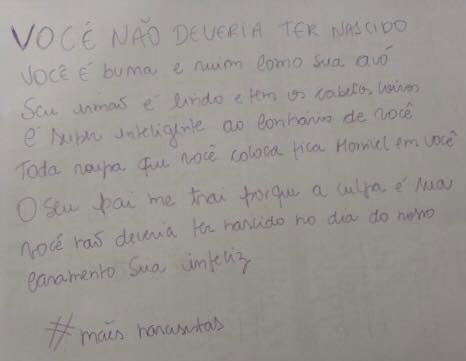 VOCÊ NÃO DEVERIA TER NASCIDO
VOCÊ É burra e ruim como sua avó
Seu irmão é lindo e tem os cabelos loiros
É super inteligente ao contrário de você
Toda roupa que você coloca fica Horrível em você
O seu pai me trai porque a culpa é sua
você não deveria ter nascido no dia do nosso
casamento sua infeliz
#mães narcisistas